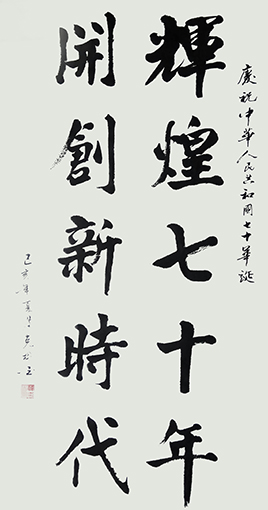 慶祝中華人民共和國七十華誕
輝煌七十年
開創新時代
己亥年夏月